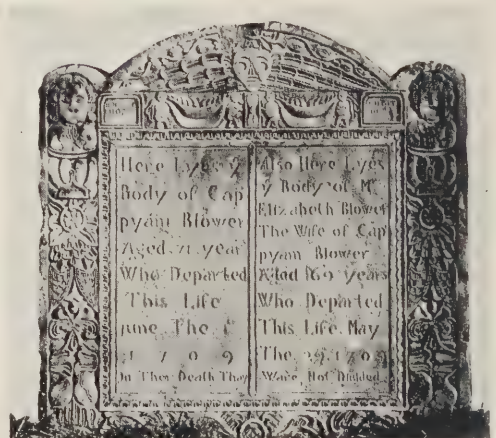 Here Lyes yͤ
Body of Cap
pyam Blower
Aged 71 year
Who Departed
This Life
June The 1
1709
In Ther Death Thay
Also Here Lyes
yͤ Body of Mʳˢ
Elizabeth Blower
The Wife of Cap
pyam Blower
Aged 69 years
Who Departed
This Life May
The 29 1709
Ware Not Divided